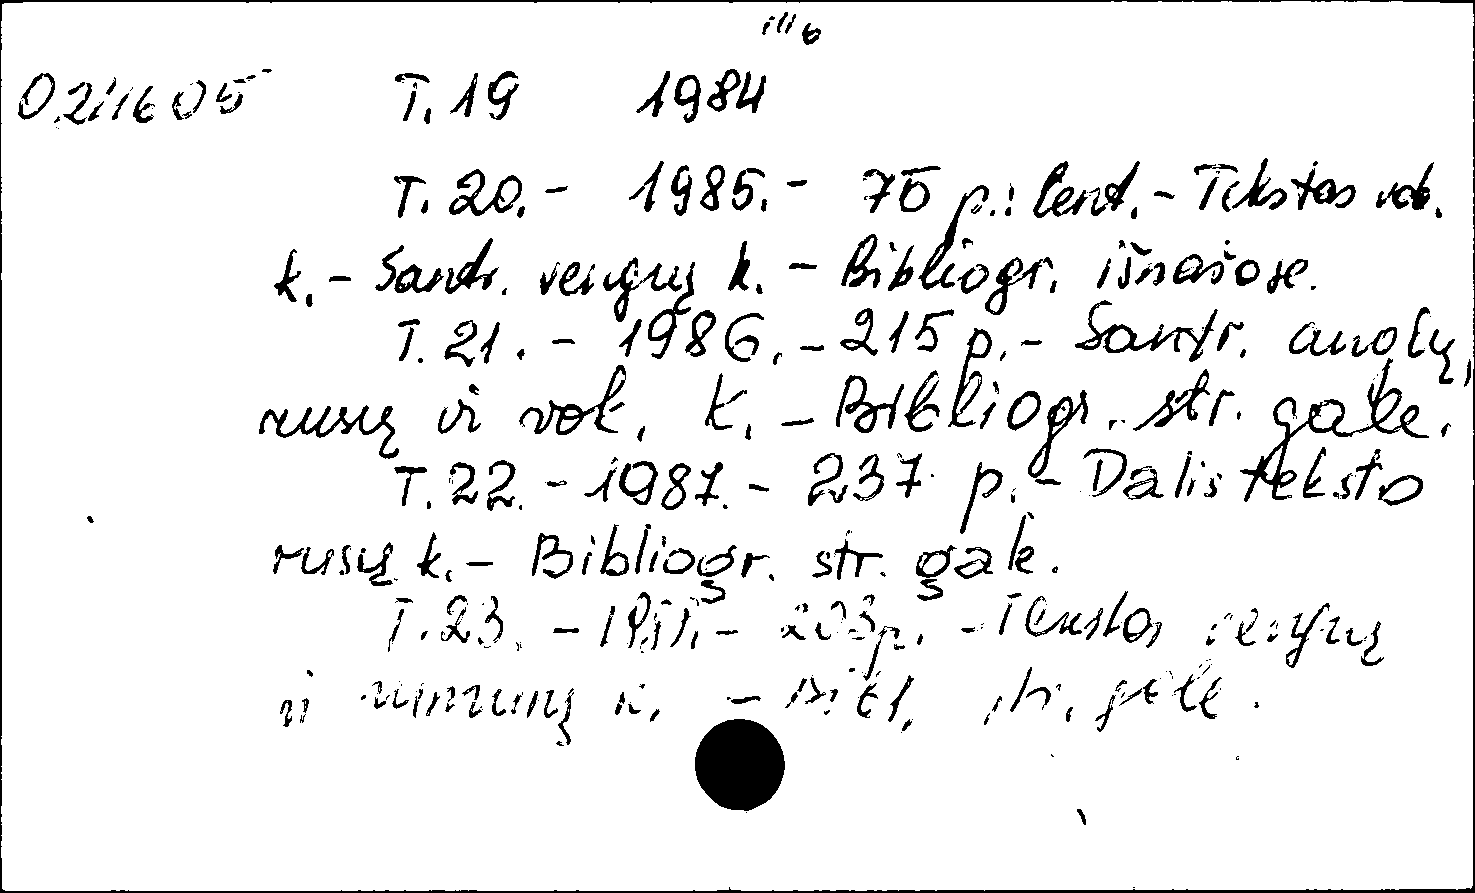 T.19 1984
T.20.- 1985.- 75 p.: lent.- Tekstas vok.
k.- Santr. vengrų k. - Bibliogr. išnašose.
T.21. - 1986. - 215 p.- Santr. anglų,
rusų ir vok. k. - Bibliogr. str. gale.
T.22. - 1987. - 237 p. - Dalis teksto
rusų k. - Bibliogr. str. gale.
T.23. - - 203 p. - Tekstas vengrų
ir rumunų k. - Bibl. str. gale.